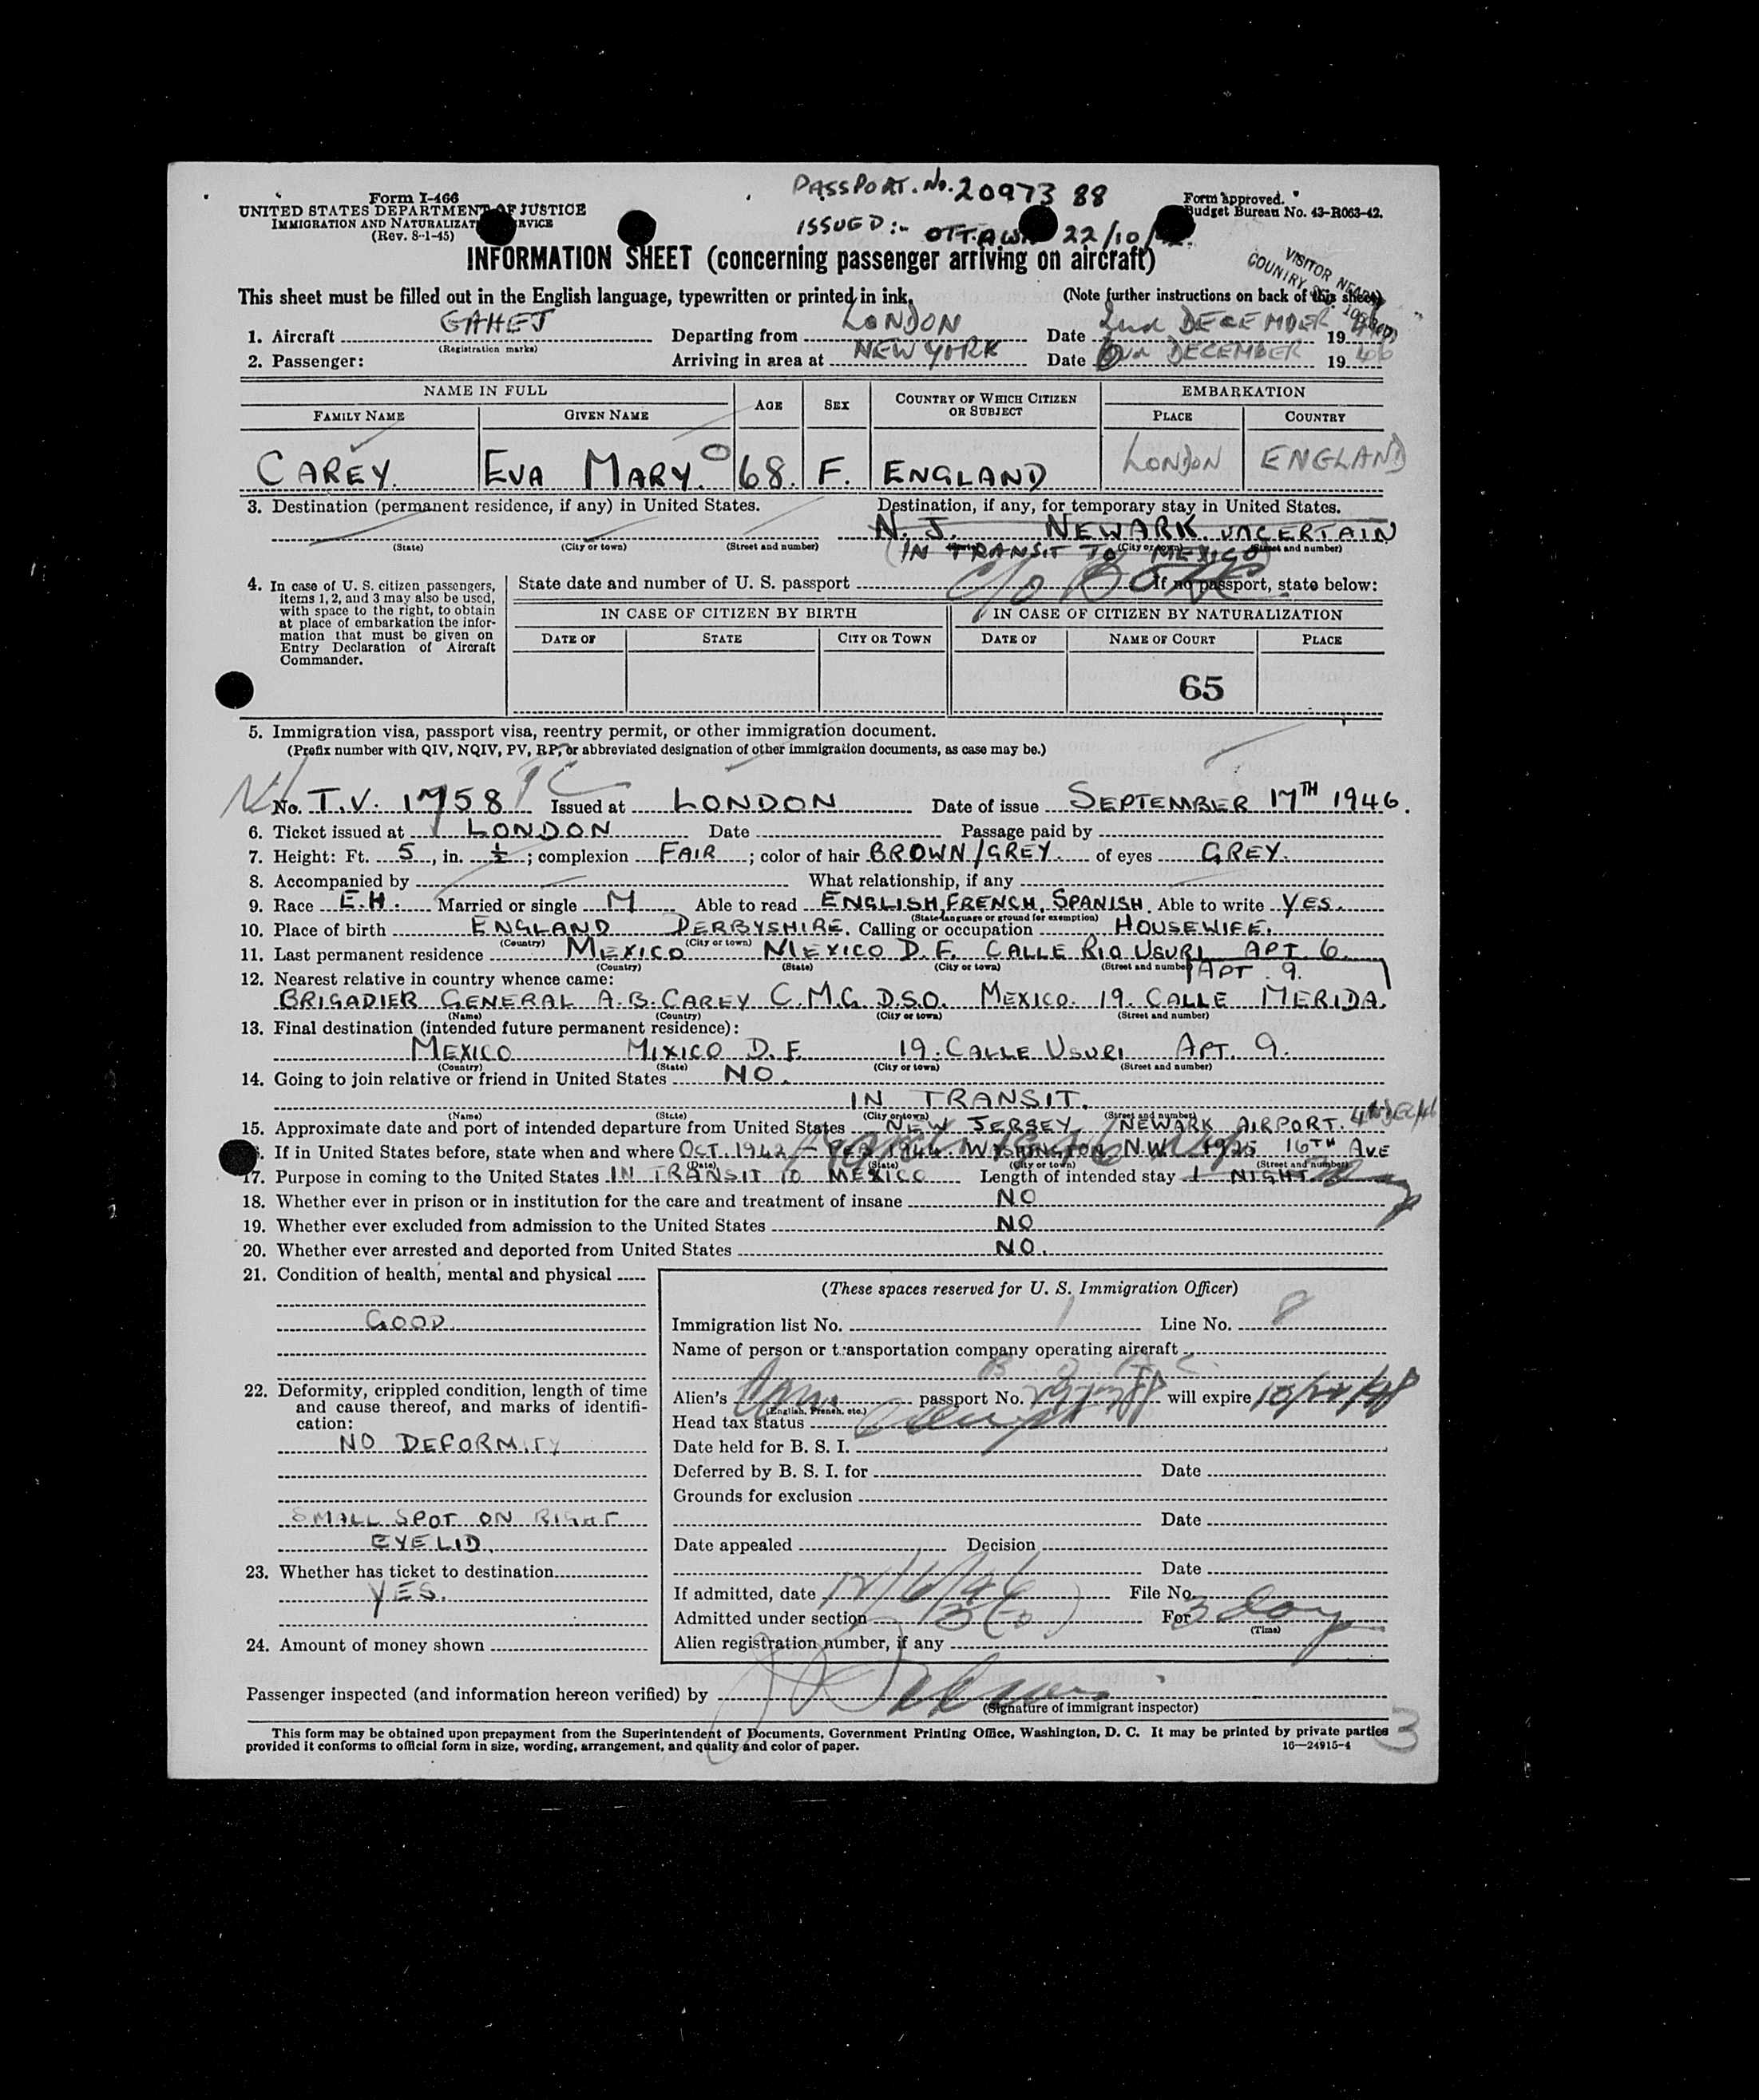 PASSPORT. No. 20973 88
Form I-466
UNITED STATES DEPARTMENT OF JUSTICE
IMMIGRATION AND NATURALIZAT RVICE
(Rev. 8-1-45)
Form approved.
Budget Bureau No. 43-R063-42.
ISSUED:- OTTAWA 22/10/
INFORMATION SHEET (concerning passenger arriving on aircraft)
VISITOR
COUNTRY
This sheet must be filled out in the English language, typewritten or printed in ink.
(Note further instructions on back of this sheet)
1. Aircraft GAHEJ Departing from LONDON Date 2nd DECEMBER 19
(Registration marks)
2. Passenger: Arriving in area at NEW YORK Date DECEMBER 19 46
NAME IN FULL AGE SEX COUNTRY OF WHICH CITIZEN OR SUBJECT EMBARKATION
FAMILY NAME GIVEN NAME PLACE COUNTRY
CAREY. EVA MARY. 68. F. ENGLAND LONDON ENGLAND
3. Destination (permanent residence, if any) in United States. Destination, if any, for temporary stay in United States.
N. J. NEWARK. UNCERTAIN
(State) (City or town) (Street and number) (City or town) (Street and number)
(IN TRANSIT TO MEXICO)
4. In case of U. S. citizen passengers,
items 1, 2, and 3 may also be used,
with space to the right, to obtain
at place of embarkation the infor-
mation that must be given on
Entry Declaration of Aircraft
Commander.
State date and number of U. S. passport If no passport, state below:
c/o
IN CASE OF CITIZEN BY BIRTH IN CASE OF CITIZEN BY NATURALIZATION
DATE OF STATE CITY OR TOWN DATE OF NAME OF COURT PLACE
65
5. Immigration visa, passport visa, reentry permit, or other immigration document.
(Prefix number with QIV, NQIV, PV, RP, or abbreviated designation of other immigration documents, as case may be.)
No. T.V. 1758 Issued at LONDON Date of issue SEPTEMBER 17TH 1946.
6. Ticket issued at LONDON Date Passage paid by
7. Height: Ft. 5, in. ½; complexion FAIR; color of hair BROWN/GREY. of eyes GREY.
8. Accompanied by What relationship, if any
9. Race E.H. Married or single M Able to read ENGLISH, FRENCH, SPANISH. Able to write YES.
(State language or ground for exemption)
10. Place of birth ENGLAND DERBYSHIRE. Calling or occupation HOUSEWIFE.
(Country) (City or town)
11. Last permanent residence MEXICO MEXICO D.F. CALLE RIO USURI APT. 6.
(Country) (State) (City or town) (Street and number)
APT. 9.
12. Nearest relative in country whence came:
BRIGADIER GENERAL A.B. CAREY C.M.G. D.S.O. MEXICO. 19. CALLE MERIDA.
(Name) (Country) (City or town) (Street and number)
13. Final destination (intended future permanent residence):
MEXICO MIXICO D.F. 19. CALLE USURI APT. 9.
(Country) (State) (City or town) (Street and number)
14. Going to join relative or friend in United States NO.
IN TRANSIT.
(Name) (State) (City or town) (Street and number)
15. Approximate date and port of intended departure from United States NEW JERSEY. NEWARK AIRPORT.
If in United States before, state when and where OCT. 1942 – FEB 1944. WASHINGTON N.W. 1925 16TH AVE
(Date) (State) (City or town) (Street and number)
17. Purpose in coming to the United States IN TRANSIT TO MEXICO Length of intended stay 1 NIGHT
18. Whether ever in prison or in institution for the care and treatment of insane NO
19. Whether ever excluded from admission to the United States NO
20. Whether ever arrested and deported from United States NO.
21. Condition of health, mental and physical
GOOD.
22. Deformity, crippled condition, length of time
and cause thereof, and marks of identifi-
cation:
NO DEFORMITY
SMALL SPOT ON RIGHT
EYELID.
23. Whether has ticket to destination
YES.
24. Amount of money shown
(These spaces reserved for U. S. Immigration Officer)
Immigration list No. 1 Line No. 8
Name of person or transportation company operating aircraft
B O A C.
Alien's passport No. will expire 10/22/48
(English, French, etc.)
Head tax status
Date held for B. S. I.
Deferred by B. S. I. for Date
Grounds for exclusion
Date
Date appealed Decision
Date
If admitted, date 12/6/46 File No.
Admitted under section For 3 days
(Time)
Alien registration number, if any
Passenger inspected (and information hereon verified) by
(Signature of immigrant inspector)
This form may be obtained upon prepayment from the Superintendent of Documents, Government Printing Office, Washington, D. C. It may be printed by private parties
provided it conforms to official form in size, wording, arrangement, and quality and color of paper.
16—24915-4
3